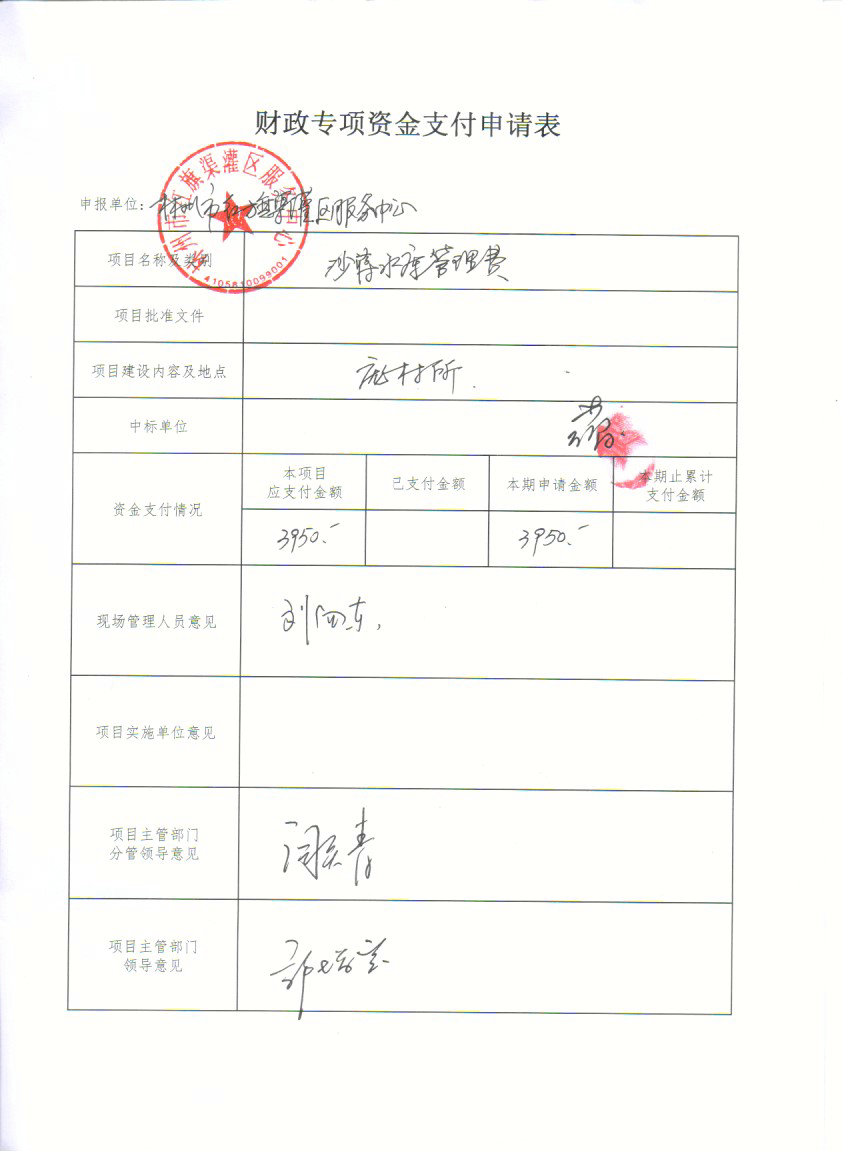 财政专项资金支付申请表
林州市红旗渠灌区服务中心
4105810099001
申报单位：林州市红旗渠灌区服务中心
项目名称及类别 水库管理费
项目批准文件
项目建设内容及地点 庞村所
中标单位
资金支付情况
本项目 应支付金额
已支付金额
本期申请金额
本期止累计 支付金额
3950.- 3950.-
现场管理人员意见
项目实施单位意见
项目主管部门
分管领导意见
项目主管部门
领导意见